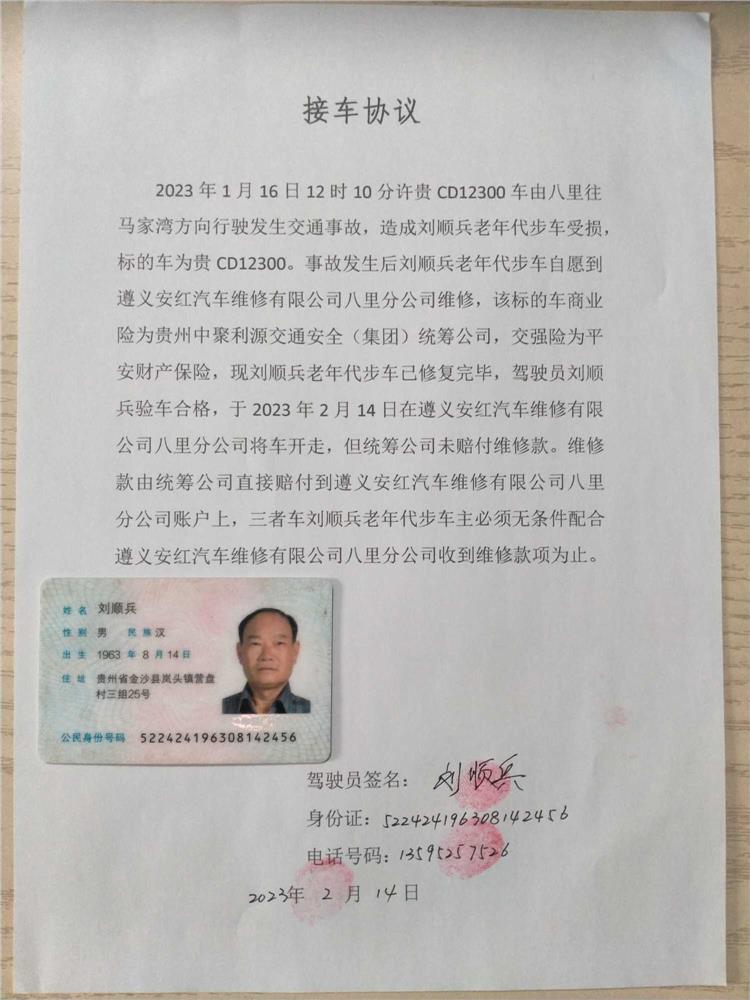 接车协议
2023年1月16日12时10分许贵CD12300车由八里往
马家湾方向行驶发生交通事故，造成刘顺兵老年代步车受损，
标的车为贵CD12300。事故发生后刘顺兵老年代步车自愿到
遵义安红汽车维修有限公司八里分公司维修，该标的车商业
险为贵州中聚利源交通安全（集团）统筹公司，交强险为平
安财产保险，现刘顺兵老年代步车已修复完毕，驾驶员刘顺
兵验车合格，于2023年2月14日在遵义安红汽车维修有限
公司八里分公司将车开走，但统筹公司未赔付维修款。维修
款由统筹公司直接赔付到遵义安红汽车维修有限公司八里
分公司账户上，三者车刘顺兵老年代步车主必须无条件配合
遵义安红汽车维修有限公司八里分公司收到维修款项为止。
姓名 刘顺兵
性别 男 民族 汉
出生 1963年8月14日
住址 贵州省金沙县岚头镇营盘
村三组25号
公民身份号码 522424196308142456
驾驶员签名：刘顺兵
身份证：522424196308142456
电话号码：13595257526
2023年2月14日